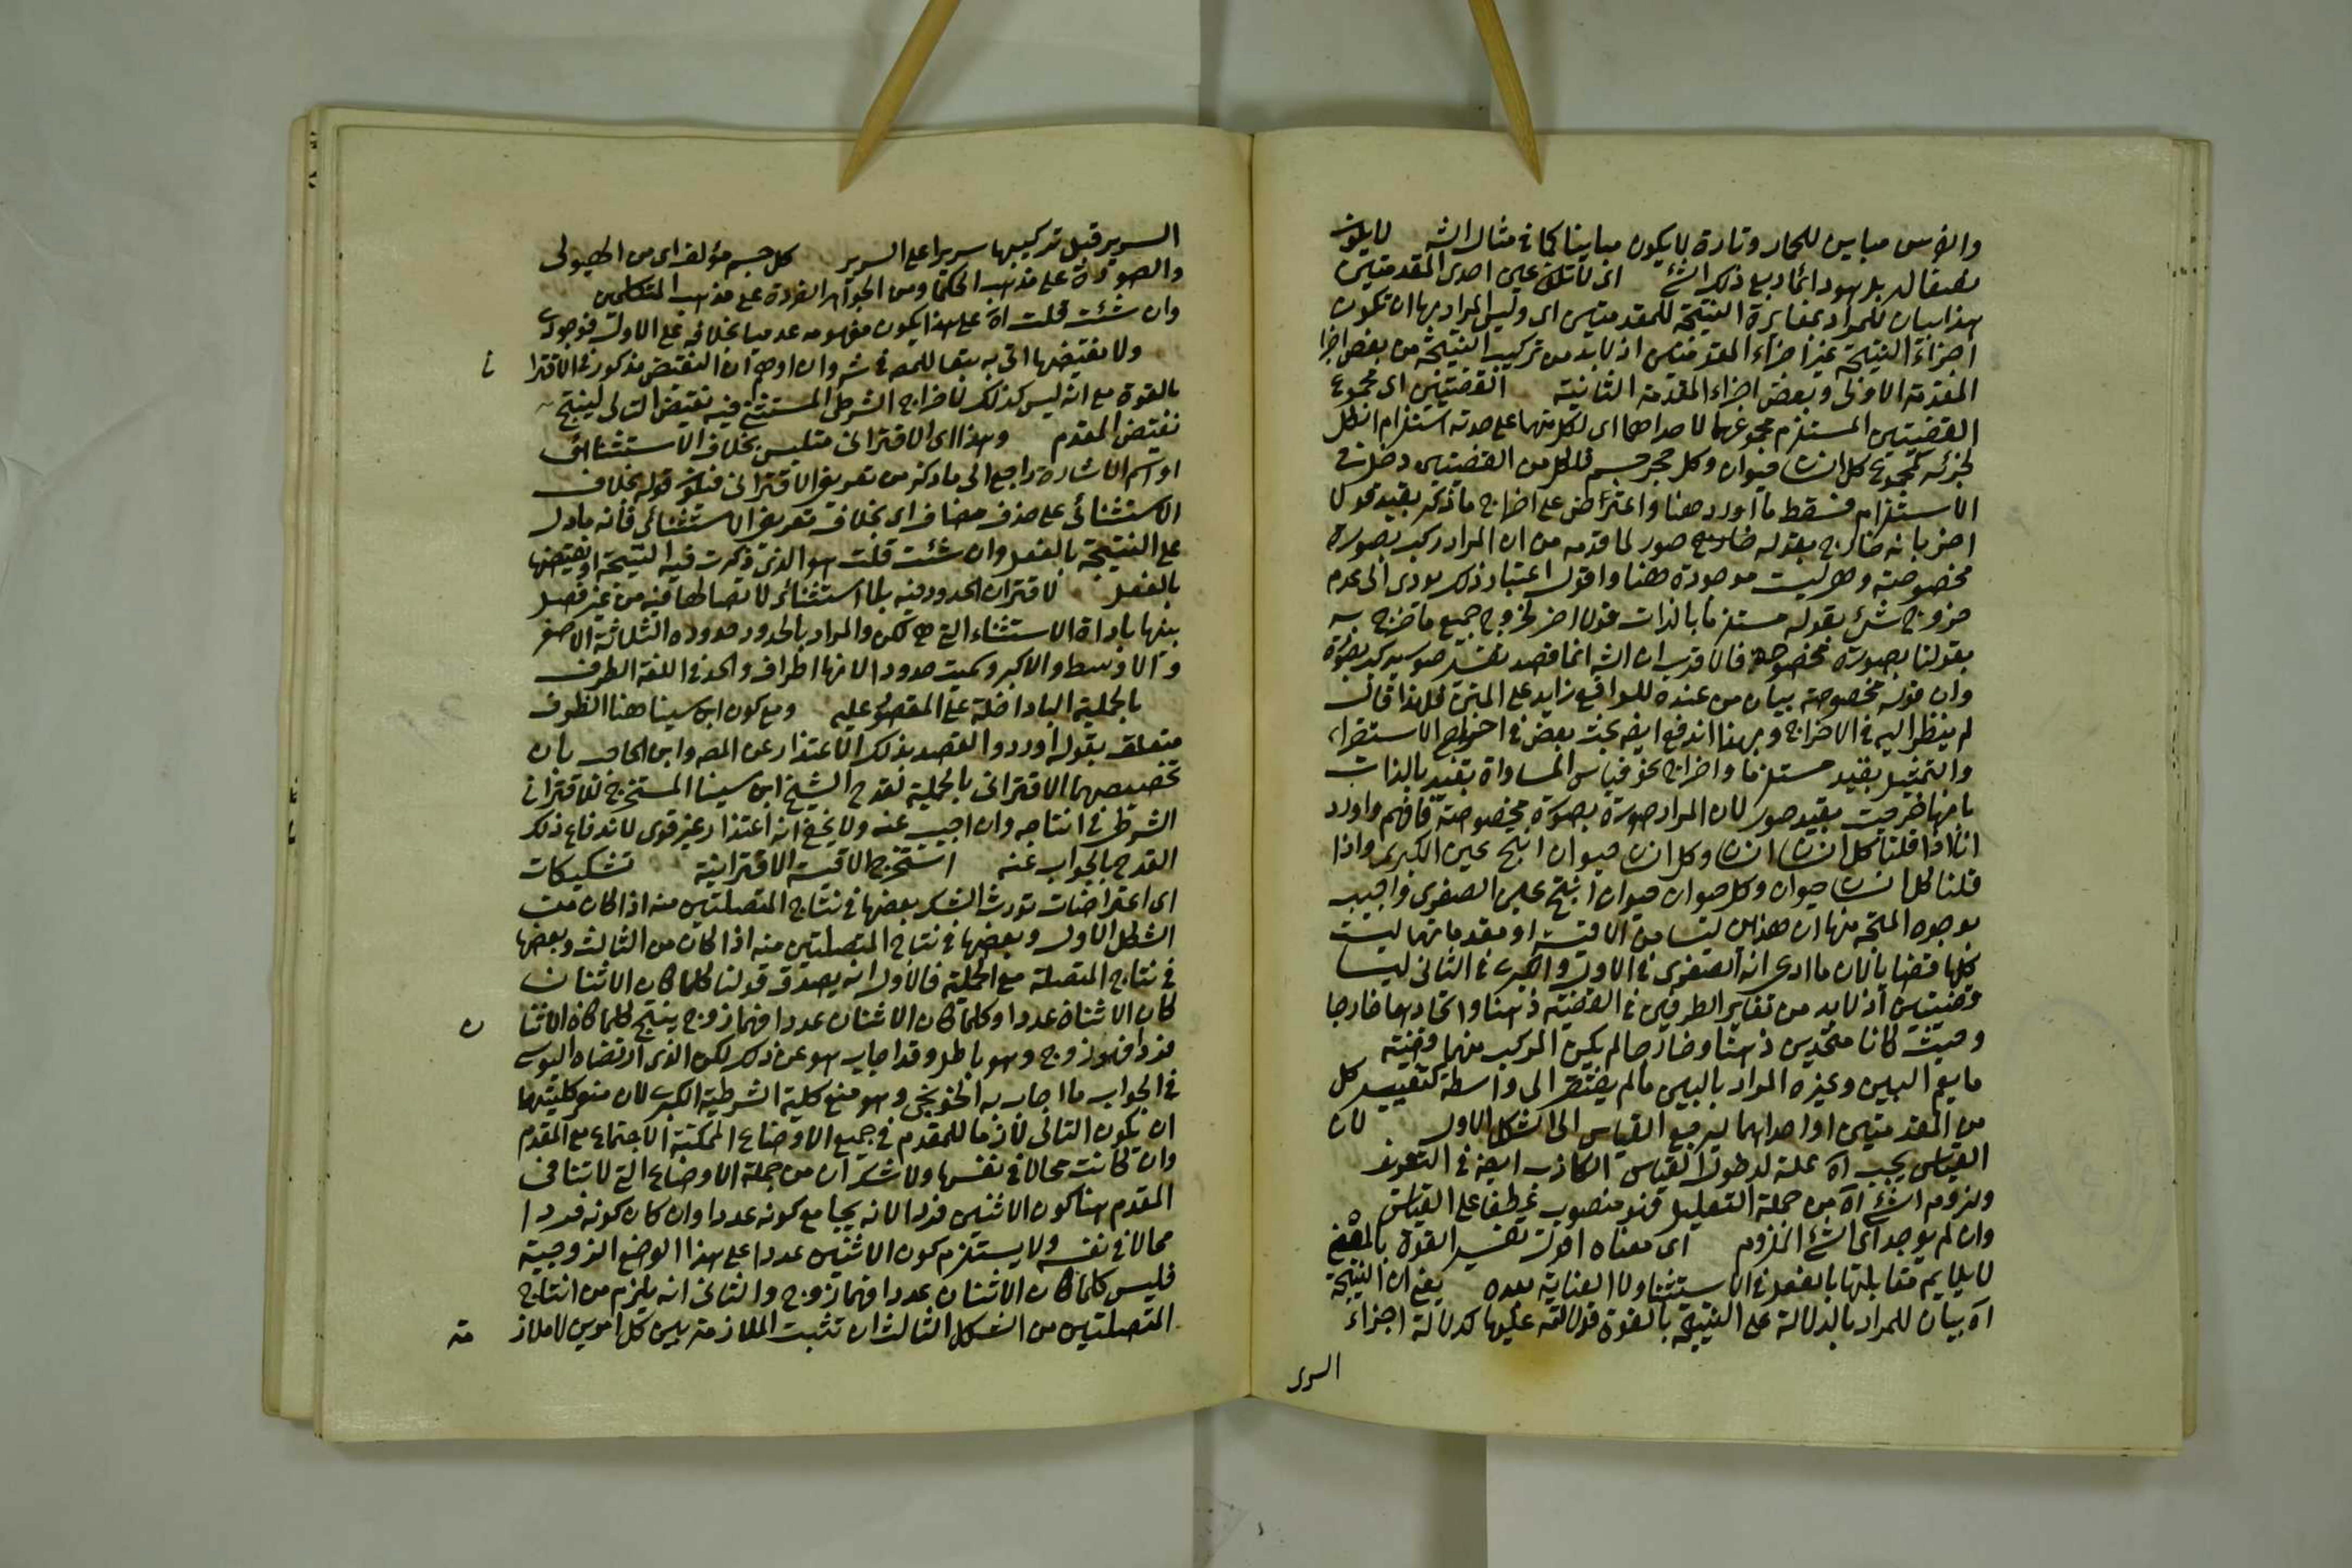 والفرس مباين للحمار وتارة لا يكون مباينا كما في مثال الشه لا يكون
نصفا له بل هو دائما ربع ذلك الشئ اى لا تكن عين احدى المقدمتين
هذا بيان للمراد بمغايرة النتيجة للمقدمتين اى وليس المراد بها ان تكون
اجزاء النتيجة غير اجزاء المقدمتين اذ لا بد من تركيب النتيجة من بعض اجزا
المقدمة الاولى وبعض اجزاء المقدمة الثانية القضيتين اى مجموع
القضيتين المستلزم مجموعهما لاحداهما اى لكل منهما على حدته استلزام الكل
لجزئه كمجموع كل انسان حيوان وكل حجر جسم فالكل من القضيتين دخل في
الاستلزام فسقط ما اورد هنا واعتراض على اخراج ما ذكر بقيد قولا
اخر بانه خارج بقوله صور لما قدمه من ان المراد ركب بصورة
مخصوصة وهى ليست موجودة هنا واقول اعتبار ذلك يودى الى عدم
خروج شئ بقوله مستلزما بالذات قولا اخر لخروج جميع ما خرج به
بقولنا بصورة مخصوصة فالاقرب ان الشه انما قصد تفسير صور بركب بصورة
وان قوله مخصوصة بيان من عنده للواقع زايد على المتن فلهذا قال
لم ينظر اليه في الاخراج وبهذا اندفع ايضه بحث بعض في اخراج الاستقراء
والتمثيل بقيد مستلزما واخراج نحو قياس المساواة بقيد بالذات
بانها خرجت بقيد صور لان المراد صورة بصورة مخصوصة فافهم واورد
انا اذا قلنا كل انسان انسان وكل انسان حيوان انتج عين الكبرى واذا
قلنا كل انسان حيوان وكل حيوان حيوان انتج عين الصغرى واجيب
بوجوه المتجه منها ان هذين ليسا من الاقيسة او مقدماتهما ليست
كلها قضايا لان ما ادعى انه الصغرى في الاول والكبرى في الثانى ليسا
قضيتين اذ لا بد من تغاير الطرفين في القضية ذهنا واتحادهما خارجا
وحيث كانا متحدين ذهنا وخارجا لم يكن المركب منهما قضية
ما يعم البين وغيره المراد بالبين ما لم يفتقر الى واسطة كتغيير كل
من المقدمتين او احداهما ليرجع القياس الى الشكل الاول لان
القياس يجب اه علة لدخول القياس الكاذب ايضه في التعريف
ولزوم الشئ اه من جملة التعليل فهو منصوب عطفا على القياس
وان لم يوجد اى الشئ الملزوم اى معناه اقول تفسير القوة بالمعنى
لا يلايم مقابلتها بالفعل في الاستثنا ولا العناية بعده يعنى ان النتيجة
اه بيان للمراد بالدلالة على النتيجة بالقوة عليها كدلالة اجزاء
السرى
السرير قبل تركيبها سريرا على السرير كل جسم مؤلف اى من الهيولى
والصورة على مذهب الحكما ومن الجواهر الفردة على مذهب المتكلمين
وان شئت قلت اه على هذا يكون مفهومه عدميا بخلافه على الاول فوجودى
ولا نقيضها اتى به تبعا للمصه في شه وان اوهم ان النقيض مذكور في الاقترا ني
بالقوة مع انه ليس كذلك لاخراج الشرطى المستثنى فيه نقيض التالى لينتج
نقيض المقدم وهذا اى الاقترانى متلبس بخلاف الاستثنائى
او اسم الاشارة راجع الى ما ذكر من تعريف الاقترانى فيكون قوله بخلاف
الاستثنائى على حذف مضاف اى بخلاف تعريف الاستثنائى فانه ما دل
على النتيجة بالفعل وان شئت قلت هو الذى ذكرت فيه النتيجة او نقيضها
بالفعل لاقتران الحدود فيه بلا استثنائى لاتصالها فيه من غير فصل
بينها باداة الاستثناء التى هى لكن والمراد بالحدود حدوده الثلاثة الاصغر
والاوسط والاكبر وسميت حدودا لانها اطراف والحد في اللغة الطرف
بالحملية البا داخلة على المقصور عليه ومع كون ابن سينا هنا الظرف
متعلق بقوله اورد والقصد بذلك الاعتذار عن المصه وابن الحاجب بان
تخصيصهما الاقترانى بالحملية لقدح الشيخ ابن سينا المستخرج للاقترانى
الشرطى في انتاجه وان اجيب عنه ولا يخفى انه اعتذار غير قوى لاندفاع ذلك
القدح بالجواب عنه استخرج الاقيسة الاقترانية تشكيكات
اى اعتراضات تورث الشك بعضها في نتاج المتصلتين منه اذا كان من
الشكل الاول وبعضها في نتاج المتصلتين منه اذا كان من الثالث وبعضها
في نتاج المتصلة مع الحملية فالاول انه يصدق قولنا كلما كان الاثنان
كان الاثنان عددا وكلما كان الاثنان عددا فهما زوج ينتج كلما كان الاثنا ن
فردا فهو زوج وهو باطل وقد اجاب هو عن ذلك لكن الذى ارتضاه اليوسى
في الجواب ما اجاب به الخونجى وهو منع كلية الشرطية الكبرى لان معنى كليتها
ان يكون التالى لازما للمقدم في جميع الاوضاع الممكنة الاجتماع مع المقدم
وان كانت محالا في نفسها ولا شك ان من جملة الاوضاع التى لا تنافى
المقدم هنا كون الاثنين فردا لانه يجامع كونه عددا وان كان كونه فردا
محالا في نفسه ولا يستلزم كون الاثنين عددا على هذا الوضع الزوجية
فليس كلما كان الاثنان عددا فهما زوج والثانى انه يلزم من انتاج
المتصلتين من الشكل الثالث ان تثبت الملازمة بين كل امرين لا ملاز مة